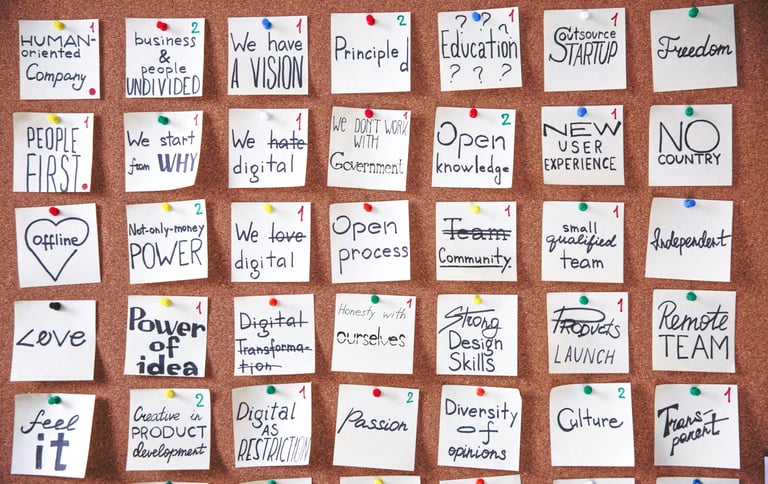 HUMAN-
oriented
Company
1
business
&
people
UNDIVIDED
2
We have
A VISION
1
Principled
2
? ? ?
Education
? ? ?
1
Outsource
STARTUP
1
Freedom
PEOPLE
FIRST.
1
We start
from WHY
1
We hate
digital
1
WE DON'T WORK
WITH
Government
1
Open
knowledge
2
NEW
USER
EXPERIENCE
1
NO
COUNTRY
offline
Not-only-money
POWER
2
We love
digital
1
Open
process
Team
Community
1
small
qualified
team
1
Independent
Love
Power
of
idea
1
Digital
Transforma-
tion
Honesty with
ourselves
1
Strong
Design
Skills
Products
LAUNCH
1
Remote
TEAM
feel
it
Creative in
PRODUCT
development
2
Digital
AS
RESTRICTION
1
Passion
2
Diversity
of
opinions
Culture
2
Trans-
parent
1